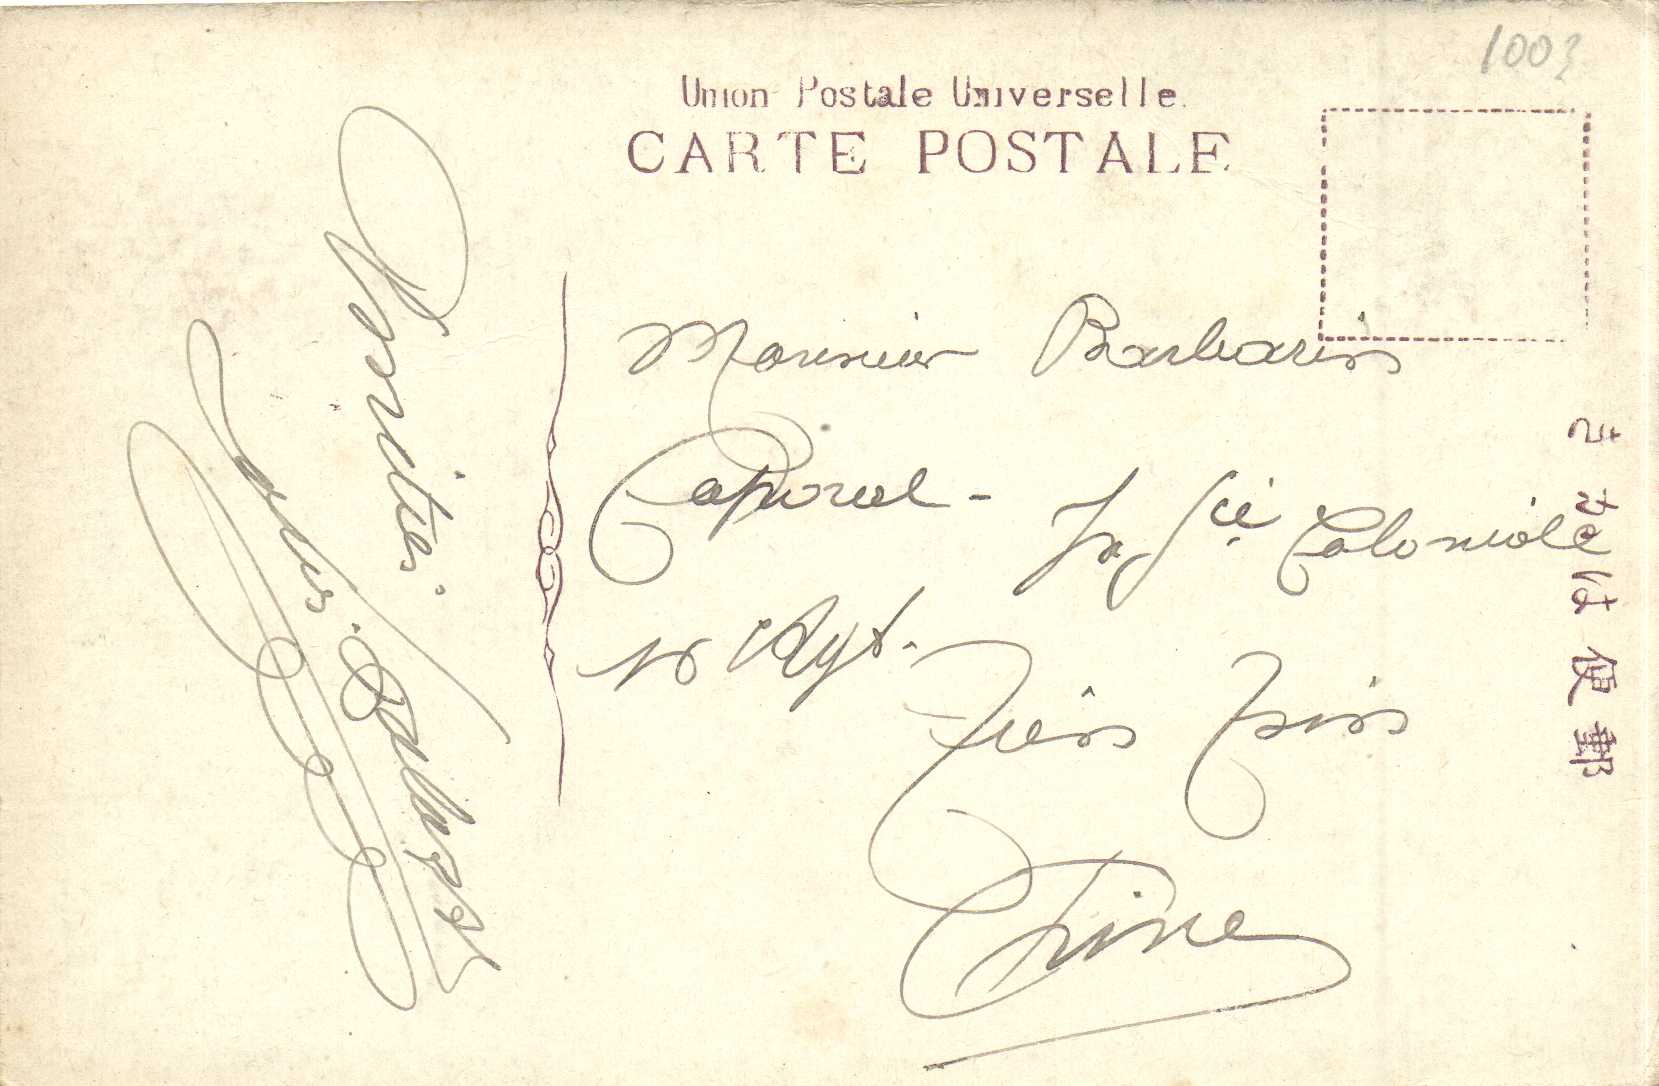 1003
Union Postale Universelle.
CARTE POSTALE
きかは便郵
Monsieur Barbarin
Caporal - Inf^ie Coloniale
16 Rgt.
Tien Tsin
Chine
Amitiés